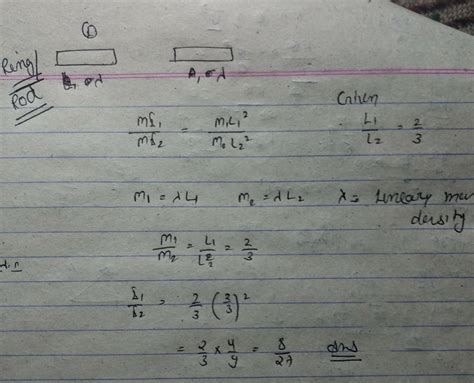 ①
Ring
Rod
L₁ or λ
A, or λ
Given
MI₁/MI₂ = M₁L₁²/M₂L₂²
L₁/L₂ = 2/3
M₁ = λL₁ M₂ = λL₂ λ = Linear density
M₁/M₂ = L₁/L₂ = 2/3
I₁/I₂ = 2/3 (2/3)²
= 2/3 × 4/9 = 8/27 Ans